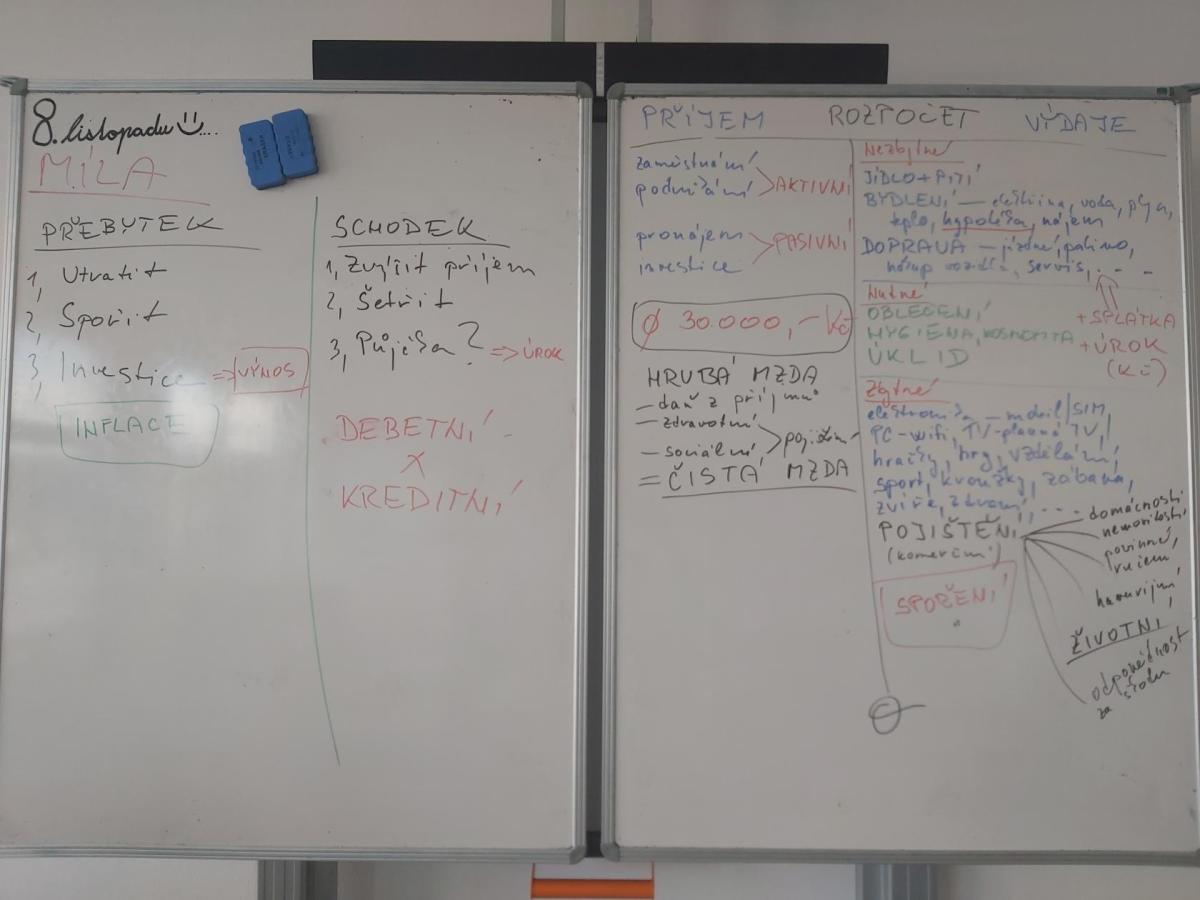 8. listopadu ...
MÍLA
PŘEBYTEK
1, Utratit
2, Spořit
3, Investice => VÝNOS
INFLACE
SCHODEK
1, Zvýšit příjem
2, Šetřit
3, Půjčka? => ÚROK
DEBETNÍ
X
KREDITNÍ
PŘÍJEM ROZPOČET VÝDAJE
zaměstnání
podnikání
AKTIVNÍ
pronájem
investice
PASIVNÍ
Ø 30.000,- Kč
HRUBÁ MZDA
- daň z příjmů
- zdravotní
- sociální
pojištění
= ČISTÁ MZDA
Nezbytné
JÍDLO + PITÍ
BYDLENÍ - elektřina, voda, plyn,
teplo, hypotéka, nájem
DOPRAVA - jízdné, palivo,
nákup vozidla, servis, ...
Nutné
OBLEČENÍ
HYGIENA, KOSMETIKA
ÚKLID
+ SPLÁTKA
+ ÚROK
(Kč)
Zbytné
elektronika - mobil/SIM,
PC-wifi, TV-placená TV,
hračky, hry, vzdělání,
sport, kroužky, zábava,
zvíře, zdraví, ...
POJIŠTĚNÍ
(komerční)
domácnosti
nemovitosti,
povinné
ručení,
havarijní
ŽIVOTNÍ,
odpovědnost
za škodu
SPOŘENÍ